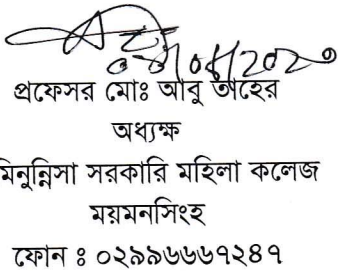 প্রফেসর মোঃ আবু তাহের
অধ্যক্ষ
মিনুন্নিসা সরকারি মহিলা কলেজ
ময়মনসিংহ
ফোন ঃ ০২৯৯৬৬৬৭২৪৭